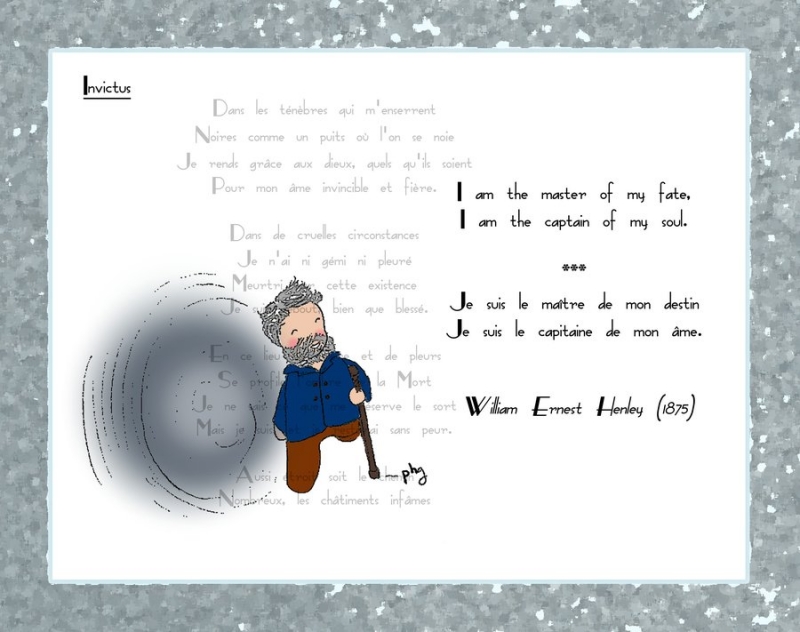 Invictus
Dans les ténèbres qui m'enserrent
Noires comme un puits où l'on se noie
Je rends grâce aux dieux, quels qu'ils soient
Pour mon âme invincible et fière.
Dans de cruelles circonstances
Je n'ai ni gémi ni pleuré
Meurtri cette existence
Je bien que blessé.
En ce lieu et de pleurs
Se la Mort
Je ne le sort
Mais je sans peur.
Aussi soit le
Nombreux, les châtiments infâmes
I am the master of my fate,
I am the captain of my soul.
***
Je suis le maître de mon destin
Je suis le capitaine de mon âme.
William Ernest Henley (1875)
phg